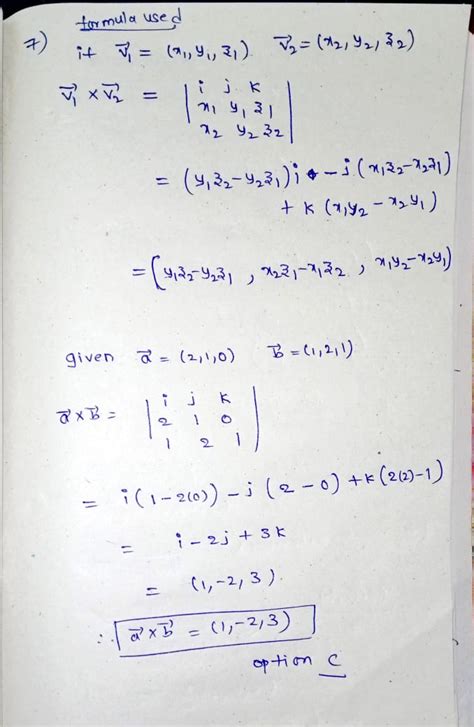 formula used
7) if v⃗₁ = (x₁, y₁, z₁) v⃗₂ = (x₂, y₂, z₂)
v⃗₁ × v⃗₂ = | i j k
x₁ y₁ z₁
x₂ y₂ z₂ |
= (y₁z₂-y₂z₁)i - j(x₁z₂-x₂z₁)
+ k (x₁y₂ - x₂y₁)
= (y₁z₂-y₂z₁ , x₂z₁-x₁z₂ , x₁y₂-x₂y₁)
given a⃗ = (2,1,0) b⃗ = (1,2,1)
a⃗ × b⃗ = | i j k
2 1 0
1 2 1 |
= i(1-2(0)) - j(2-0) + k(2(2)-1)
= i - 2j + 3k
= (1,-2,3)
∴ a⃗ × b⃗ = (1,-2,3)
option C